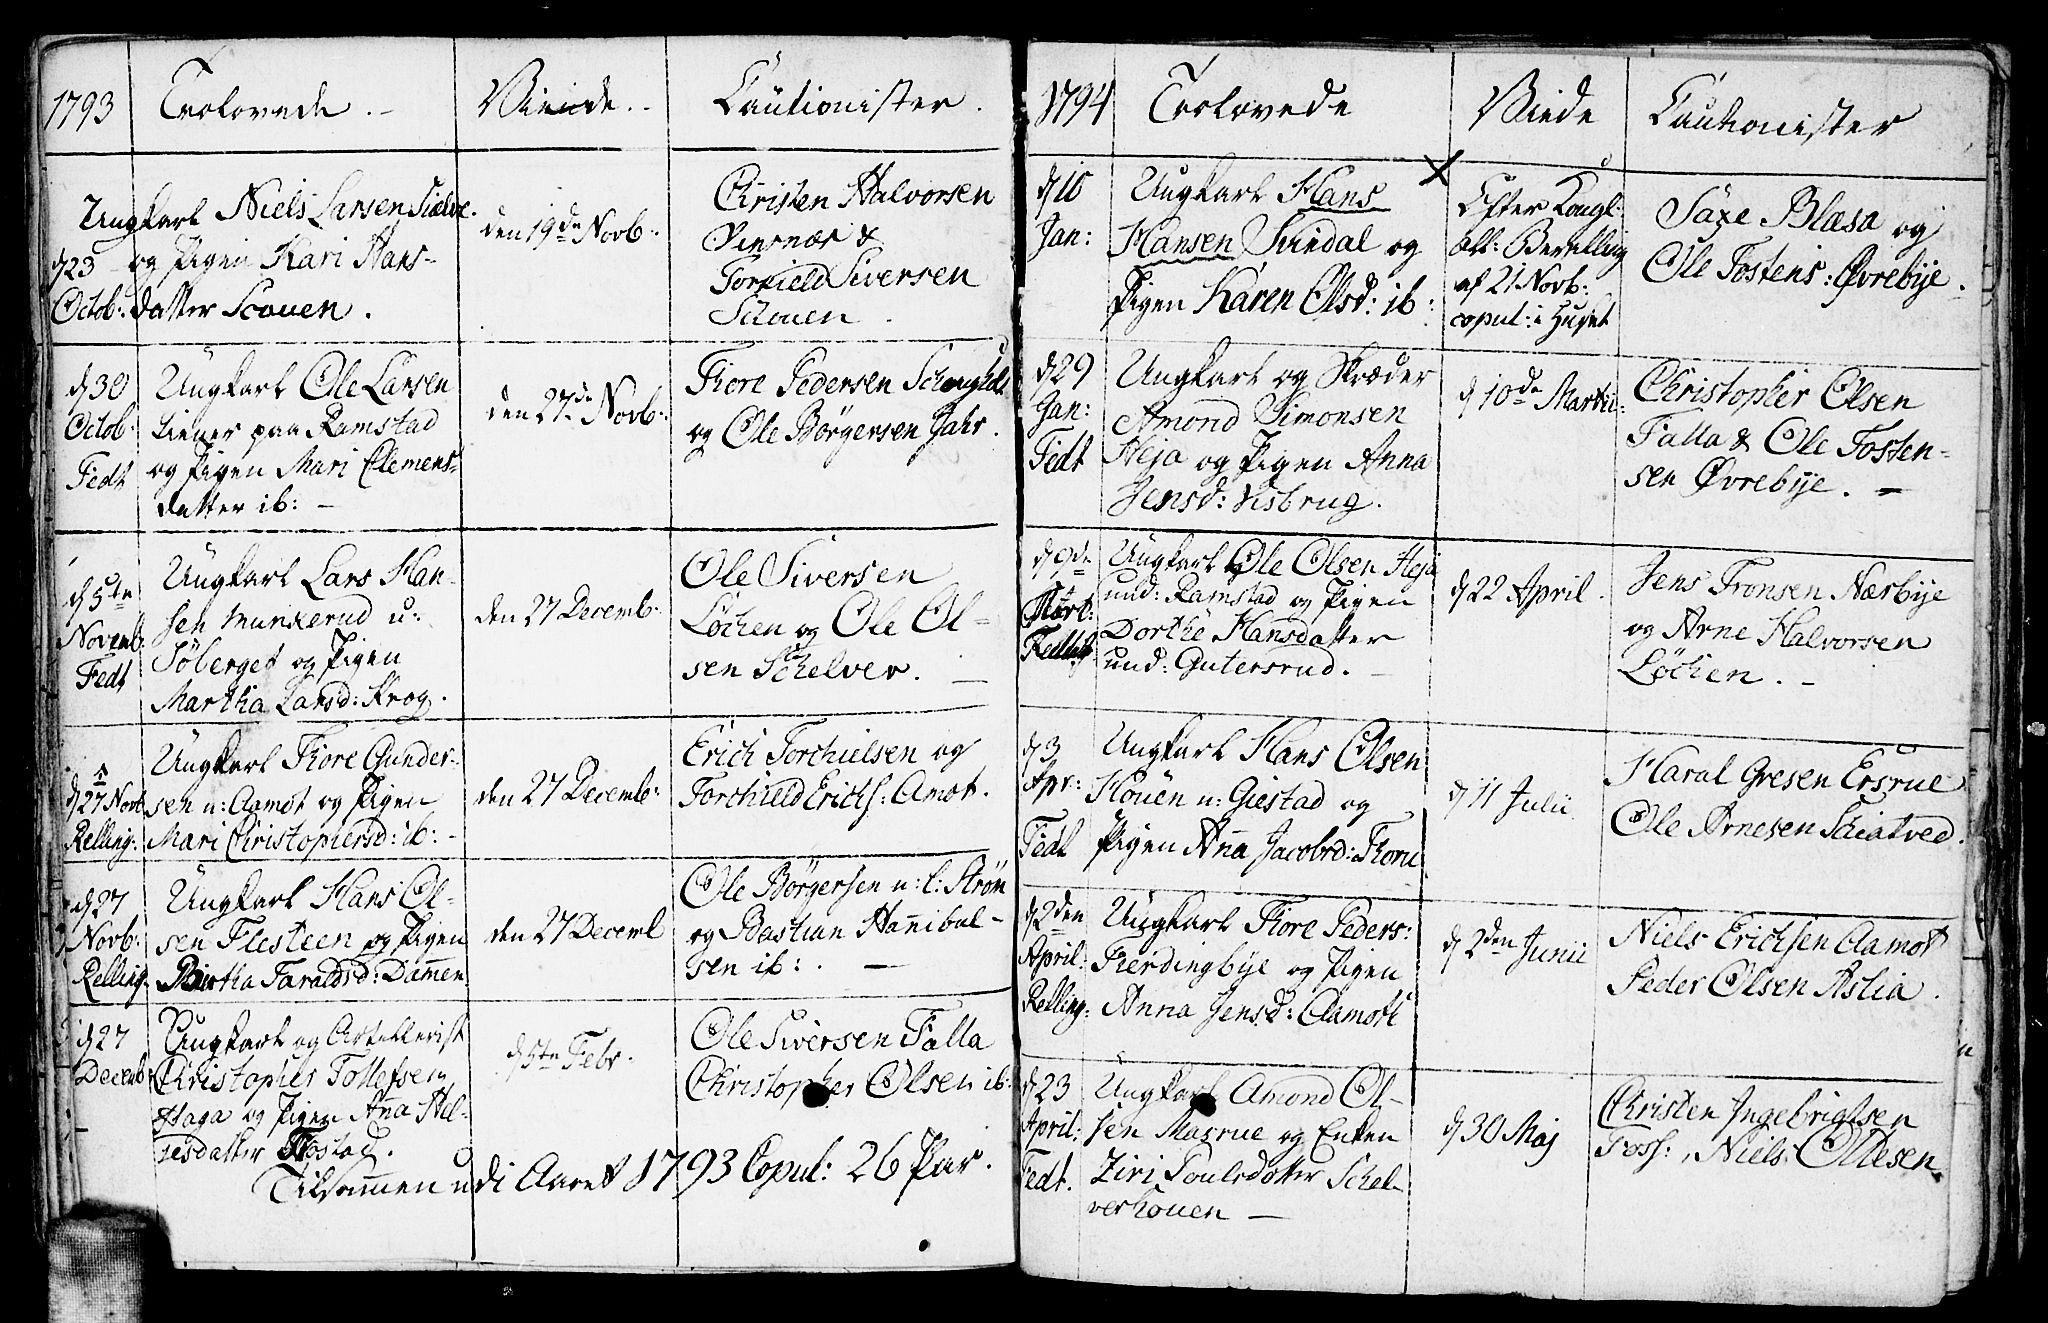 1793 Trolovede. Viede. Cautionister.
Ungkarl Niels Larsen Sielve.
d 23 og Pigen Kari Hans-
Octob: datter Scouen.
den 19de Novb:
Christen Halvorsen
Torkield Siversen
Scouen
d 30 Octob: Fedt
Ungkarl Ole Larsen
tiener paa Ramstad
og Pigen Mari Clemens-
datter ib:
den 27de Novb:
Tore Pedersen
og Ole Börgersen Jahr.
d 5te Novemb: Fedt
Ungkarl Lars Han-
sen Munkerud u:
Söberget og Pigen
Martha Larsd: Krog.
den 27 Decemb:
Ole Siversen
Löchen og Ole Ol-
sen Schelver.
d 27 Novb Relling:
Ungkarl Tore Gunder-
sen u: Aamot og Pigen
Mari Christophersd: ib:
den 27 Decemb:
Erich Torchielsen og
Torchield Erichs: Amot.
d 27 Novb: Relling:
Ungkarl Hans Ol-
sen Flesteen og Pigen
Birtha Taraldsd: Dam̄en
den 27 Decemb
Ole Börgersen u: l: Ström
og Bastian Han̄ibal-
sen ib:
d 27 Decemb:
Ungkarl og Artillerist
Christopher Tollefsen
Haga og Pigen An̄a Hel-
gesdatter
d 5te Febr.
Ole Siversen Falla
Christopher Olsen ib:
Tilsam̄en udi Aaret 1793 Copul: 26 Par.
1794 Trolovede Viede Cautionister
d 10 Jan:
Ungkarl Hans
Hansen Svindal og
Pigen Karen Olsd: ib:
Efter Kongl:
all: Bevilling
af 21 Novb:
copul: i Huset
Saxe Blæsa og
Ole Tostens: Øvrebÿe.
d 29 Jan: Fedt
Ungkarl og Skræder
Amond Simonsen
Heja og Pigen Anna
Jensd: Visbrug.
d 10de Martii
Christopher Olsen
Falla & Ole Tosten-
sen Øvrebÿe.
d 9de
Ungkarl Ole Olsen Heja
und: Ramstad og Pigen
Dorthe Hansdatter
und: Gutersrud.
d 22 April.
Jens Tronsen Nærbÿe
og Arne Halvorsen
Löchen.
d 3 Apr: Fedt
Ungkarl Hans Olsen
Houen u: Giestad og
Pigen An̄a Jacobsd: Thorn
d 11 Julii
Haral Gresen Ersrue
Ole Arnesen Schiatved.
d 2den April: Relling:
Ungkarl Tore Peders:
Fierdingbÿe og Pigen
Anna Jensd: Aamott
d 2den Junii
Niels Erichsen Aamot
Peder Olsen Aslia.
d 23 April: Fedt.
Ungkarl Amond Ol-
sen Masrue og Enken
Siri Poulsdatter Schel-
verhouen
d 30 Maj
Christen Ingebrigtsen
Foss:, Niels Ollesen